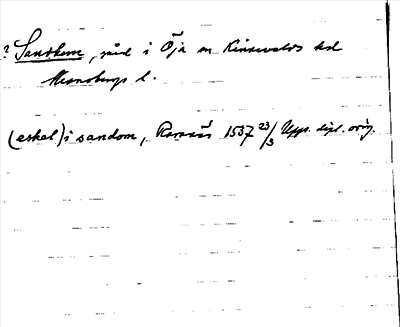 ? Sandhem, gård i Öja sn Kinnevalds hd
Kronobergs l.
(eskel) i sandom, Ramnås 1537 23/3 Upps. dipl. orig.